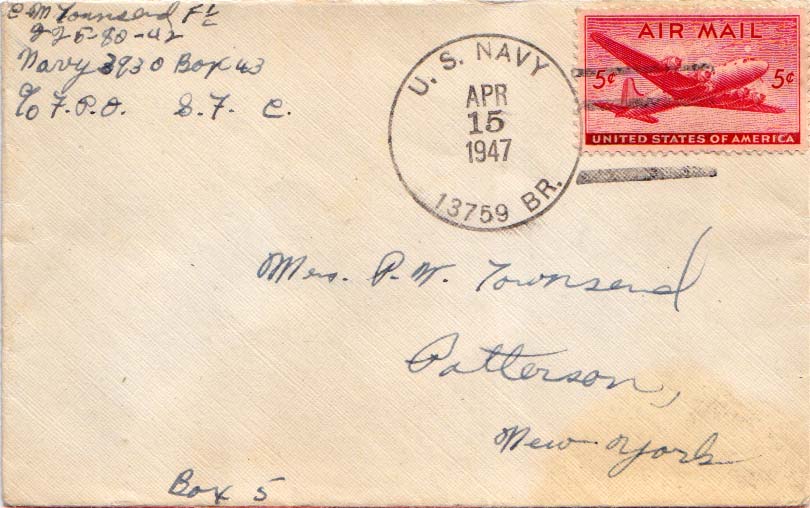 C M Townsend F1c
225-80-42
Navy 3930 Box 43
c/o F.P.O. S.F. C.
U. S. NAVY
APR
15
1947
13759 BR.
AIR MAIL
5¢ 5¢
UNITED STATES OF AMERICA
Mrs. P. W. Townsend
Patterson,
New York
Box 5